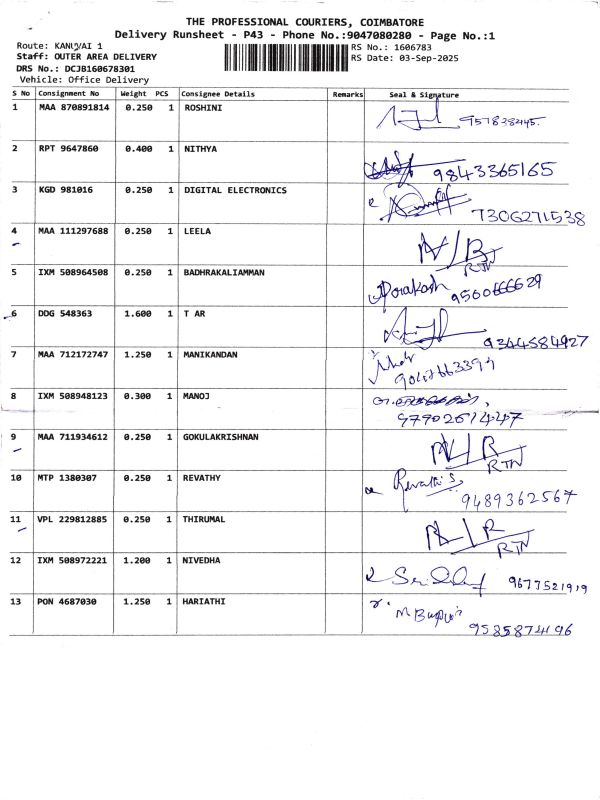 THE PROFESSIONAL COURIERS, COIMBATORE
Delivery Runsheet - P43 - Phone No.:9047080280 - Page No.:1
Route: KANUVAI 1
RS No.: 1606783
Staff: OUTER AREA DELIVERY
RS Date: 03-Sep-2025
DRS No.: DCJB160678301
Vehicle: Office Delivery
S No Consignment No Weight PCS Consignee Details Remarks Seal & Signature
1 MAA 870891814 0.250 1 ROSHINI
2 RPT 9647860 0.400 1 NITHYA 9843365165
3 KGD 981016 0.250 1 DIGITAL ELECTRONICS 7306271538
4 MAA 111297688 0.250 1 LEELA N/R RTN
5 IXM 508964508 0.250 1 BADHRAKALIAMMAN
6 DDG 548363 1.600 1 T AR 9344584927
7 MAA 712172747 1.250 1 MANIKANDAN
8 IXM 508948123 0.300 1 MANOJ
9 MAA 711934612 0.250 1 GOKULAKRISHNAN N/R RTN
10 MTP 1380307 0.250 1 REVATHY Revathi S 9489362567
11 VPL 229812885 0.250 1 THIRUMAL N/R RTN
12 IXM 508972221 1.200 1 NIVEDHA 9677521919
13 PON 4687030 1.250 1 HARIATHI